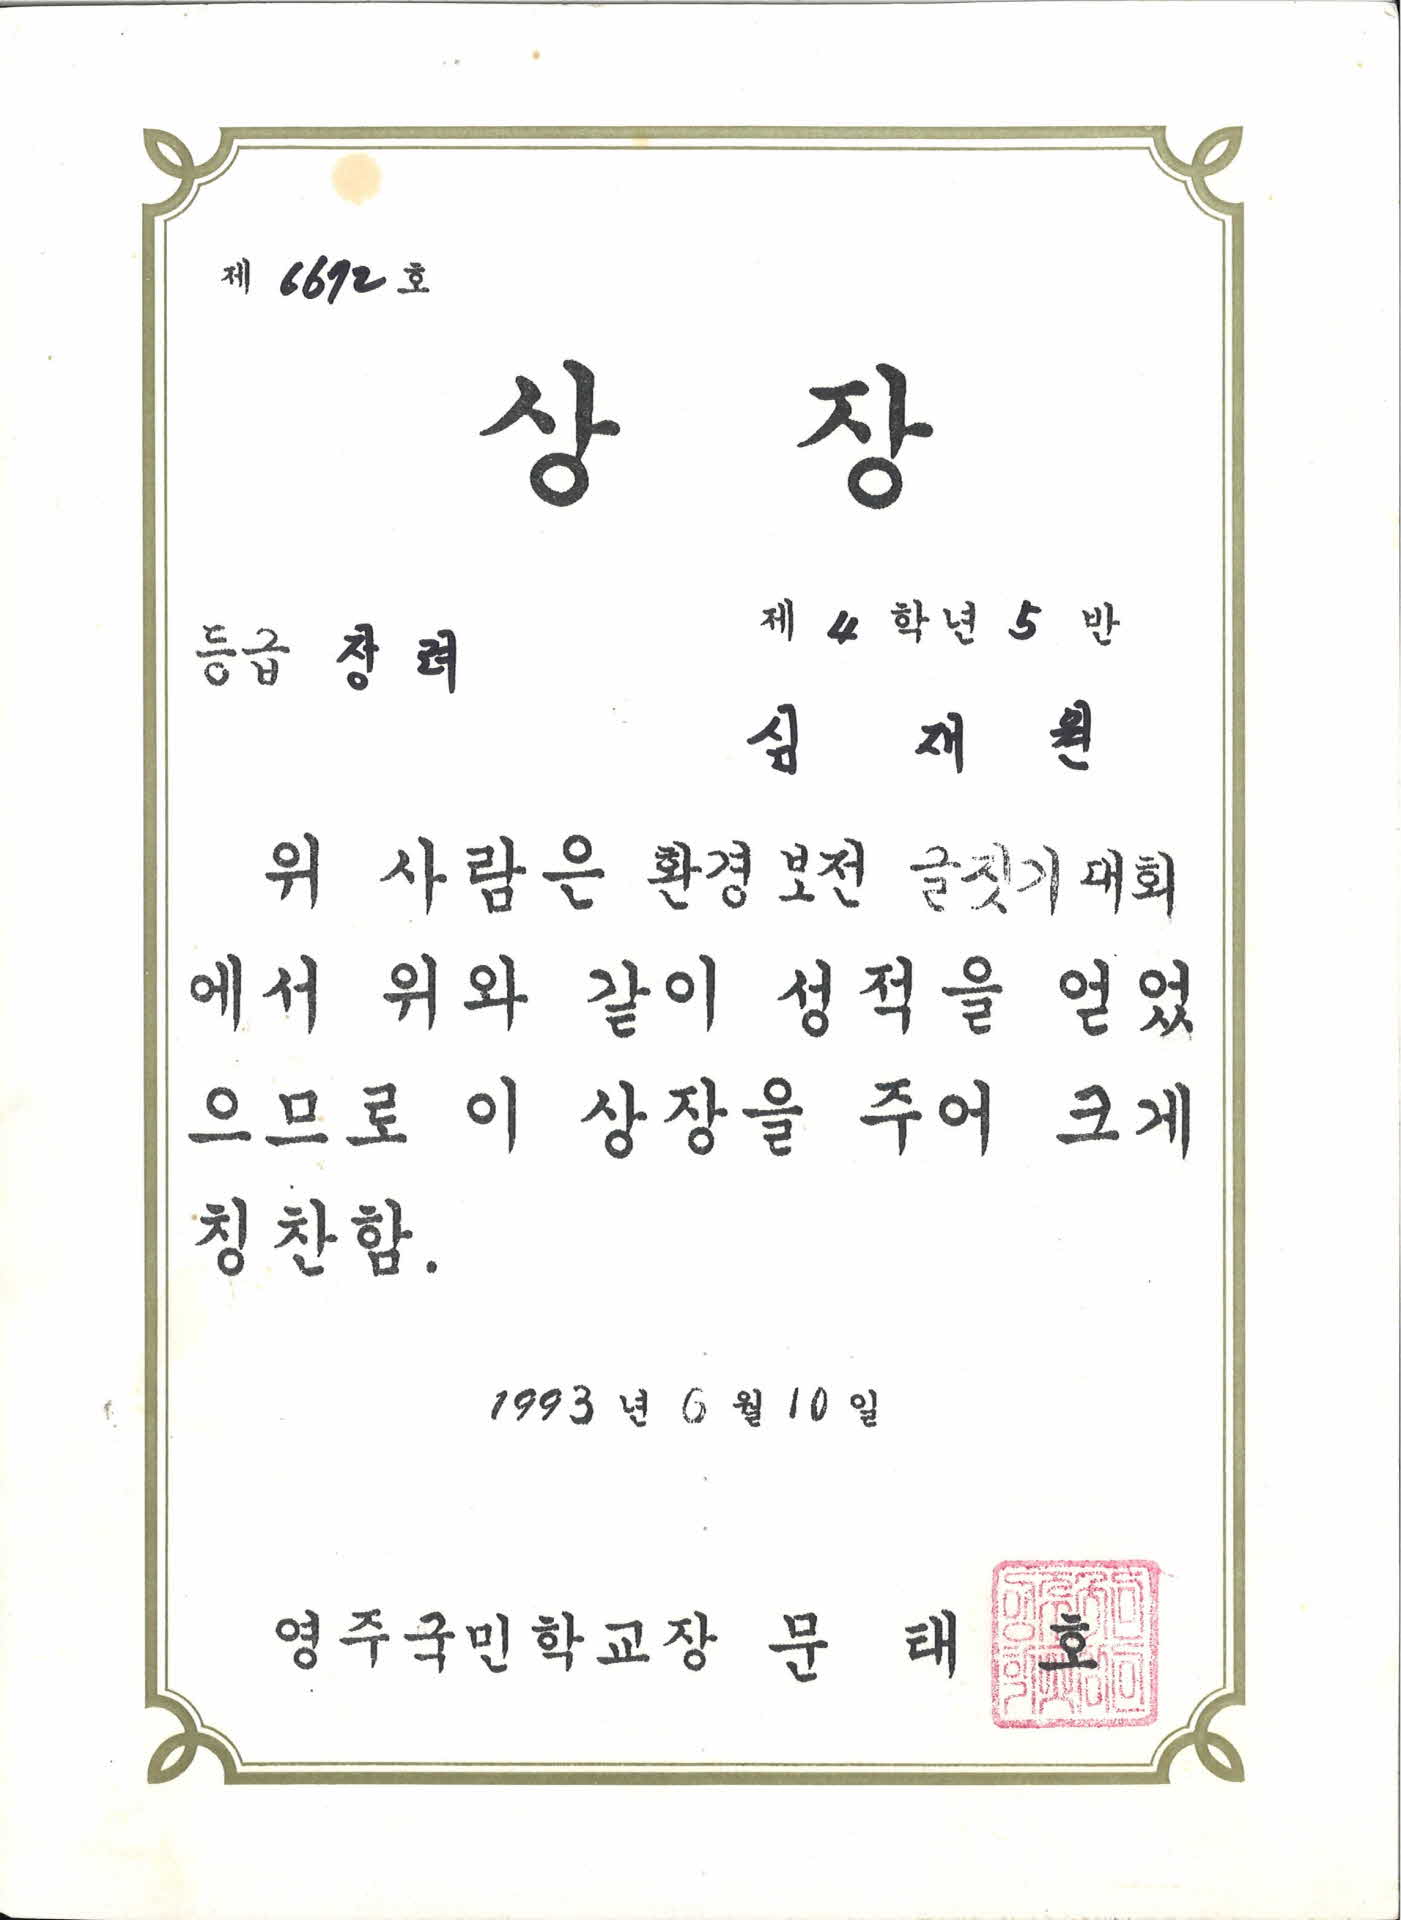 제 6692 호
상 장
등급 장려
제 4 학년 5 반
심 재 원
위 사람은 환경보전 글짓기대회
에서 위와 같이 성적을 얻었
으므로 이 상장을 주어 크게
칭찬함.
1993 년 6 월 10 일
영주국민학교장 문 태 호